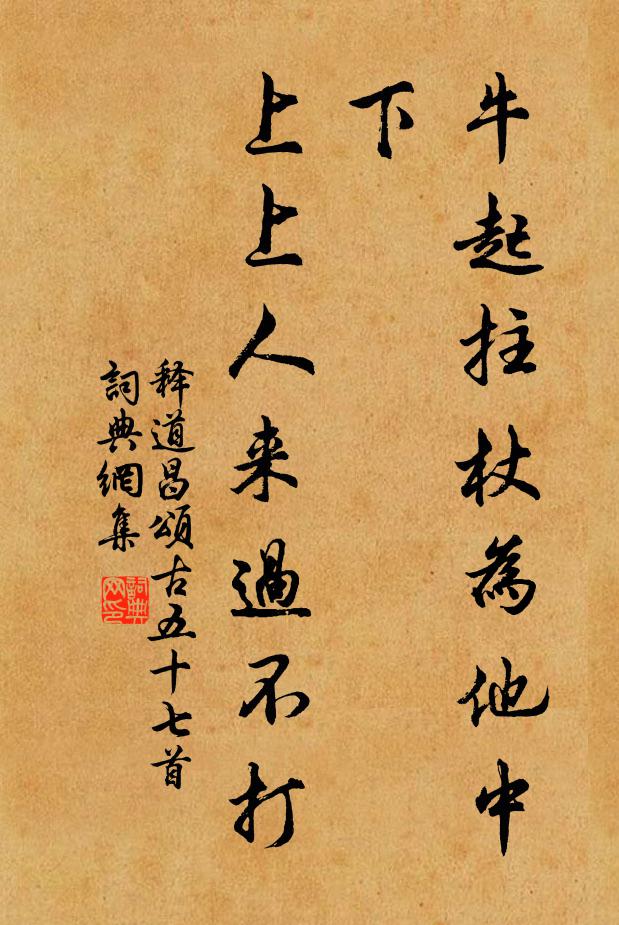 牛起拄杖為他中
下
上上人来過不打
释道昌頌古五十七首
詞典網集
詞典
网印